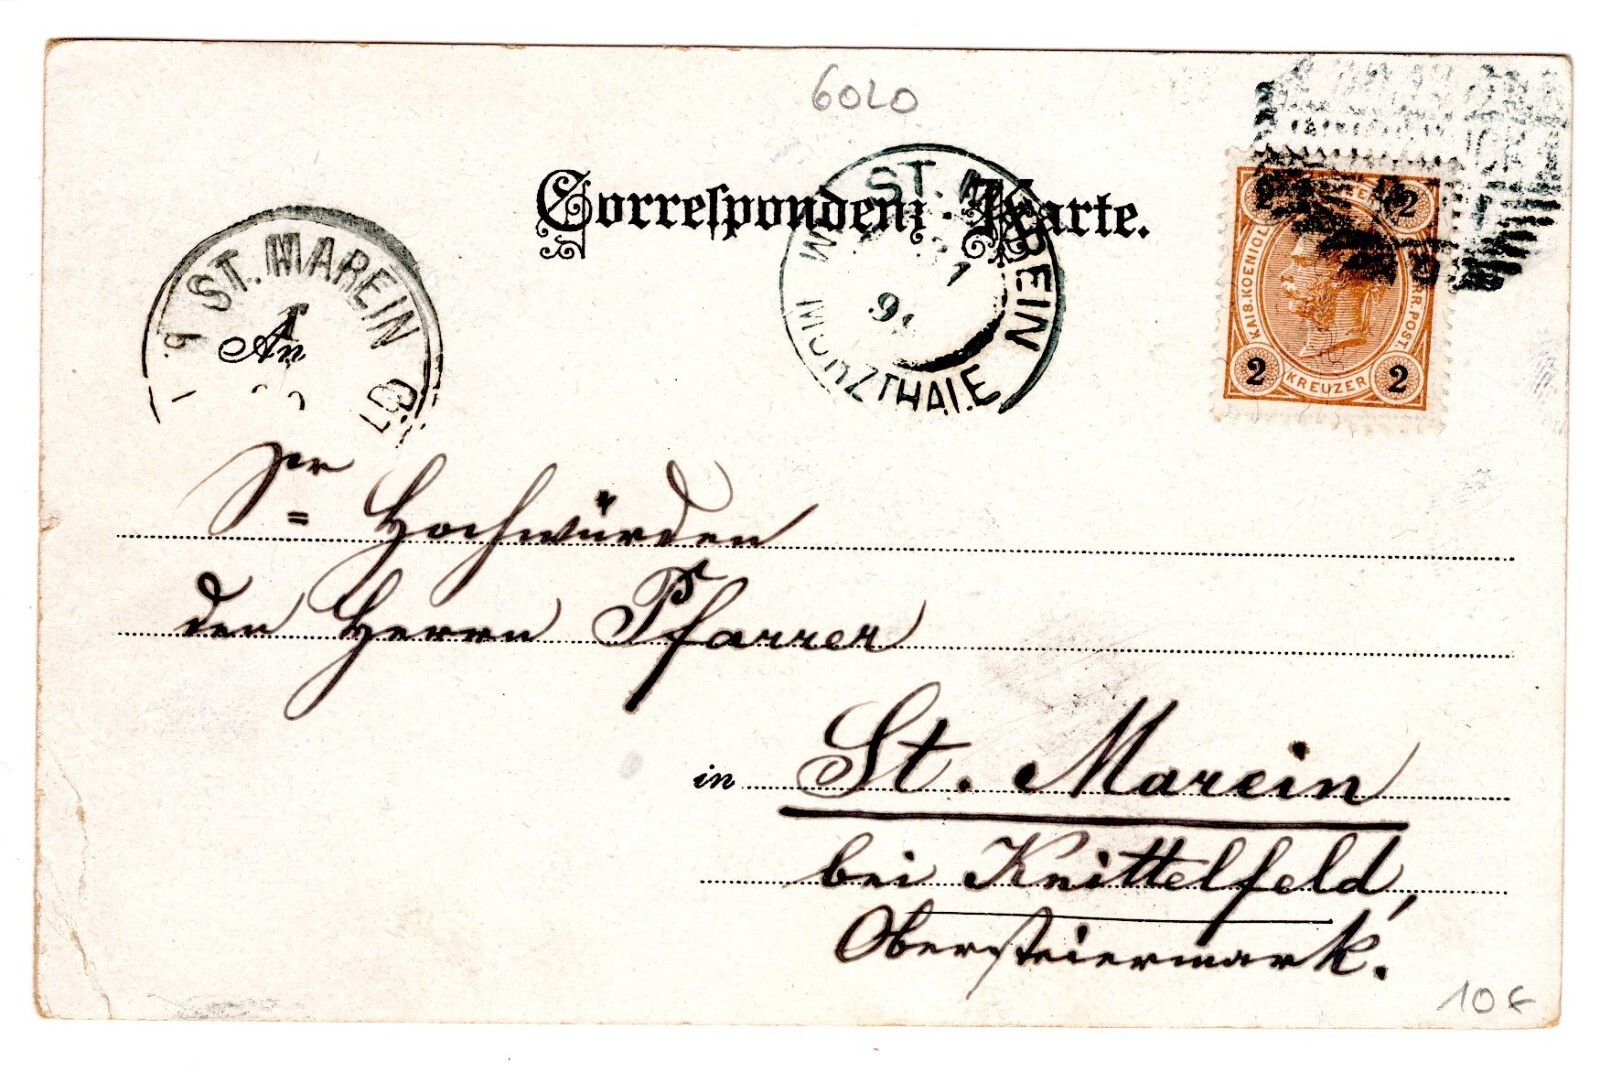 6020
Correspondenz-Karte.
ST. MAREIN
ST. MAREIN
IM MÜRZTHALE
KAIS. KOENIGL. OESTERR. POST.
2 2
2 KREUZER 2
An
Sr = Hochwürden
den Herrn Pfarrer
in St. Marein
bei Knittelfeld,
Obersteiermark.
10 €